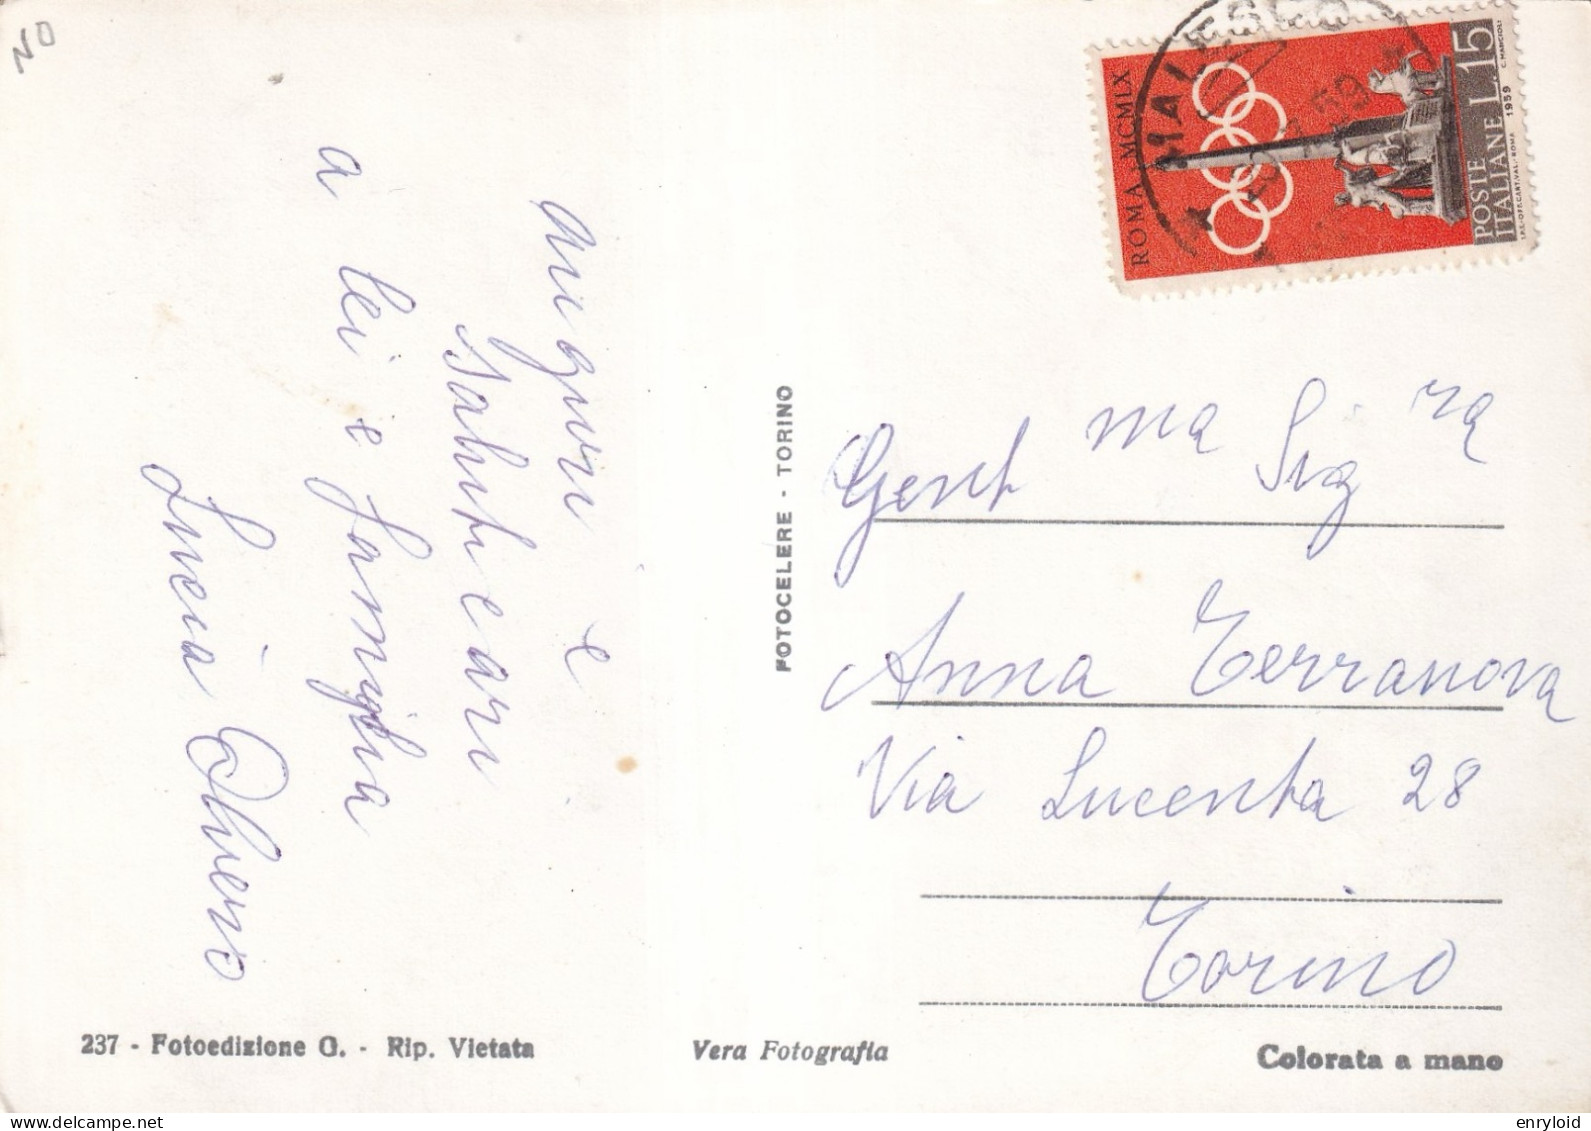 NO
auguri e
saluti cari
a lei e famiglia
Lucia Olivero
FOTOCELERE - TORINO
ROMA MCMLX
POSTE ITALIANE L. 15
1959
C. MANCIOLI
MALESCO
Gent ma Sig ra
Anna Terranova
Via Lucenta 28
Torino
237 - Fotoedizione G. - Rip. Vietata
Vera Fotografia
Colorata a mano
enryloid